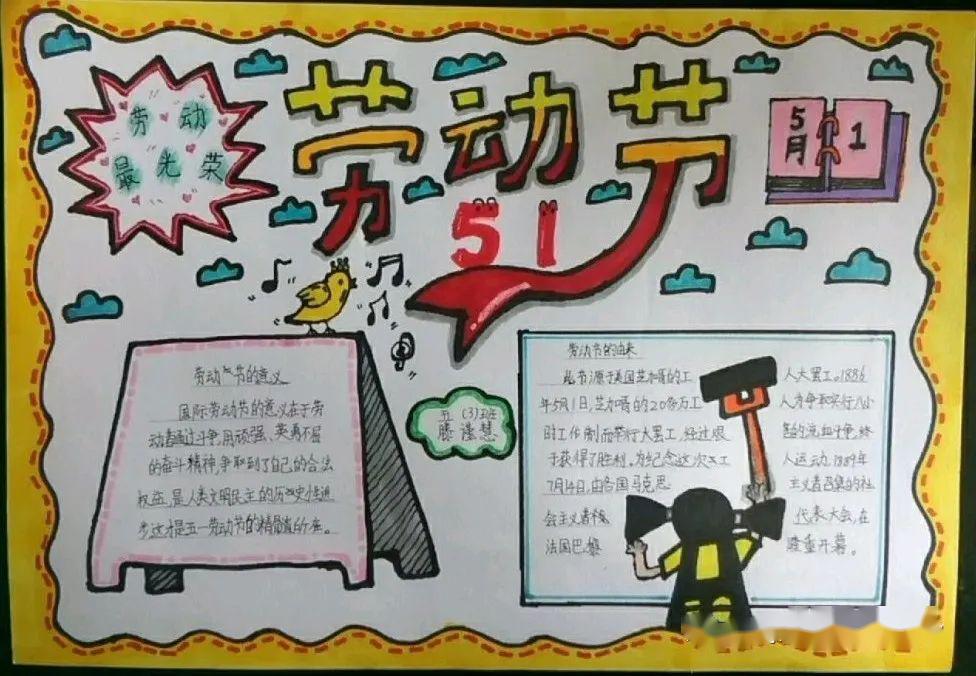 劳动
最光荣
劳动节
51
5月
1
劳动节的意义
国际劳动节的意义在于劳
动者通过斗争,用顽强、英勇不屈
的奋斗精神,争取到了自己的合法
权益,是人类文明民主的历史性进
步,这才是五一劳动节的精髓所在。
五(3)班
滕 慧
劳动节的由来
此节源于美国芝加哥的工人大罢工。1886
年5月1日,芝加哥的20多万工人为争取实行八小
时工作制而举行大罢工,经过艰 的流血斗争,终
于获得了胜利。为纪念这次工人运动,1889年
7月14日,由各国马克思主义者召集的社
会主义者 代表大会,在
法国巴黎隆重开幕。